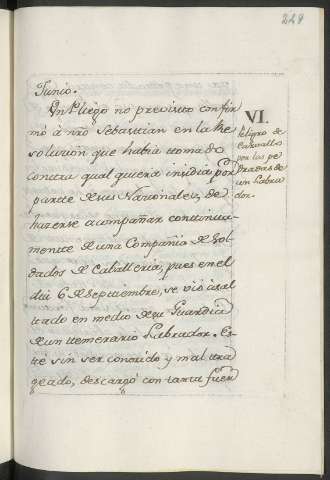 228
Junio.
Un Pliego no previsto confir
mó à nrõ Sebastian en la Re
solucion que habia tomado
contra qualquiera insidia por
parte de sus Nacionales, de
hazerse acompañar continua-
mente de una Compañia de Sol
dados de Caballeria, pues en el
dia 6 de Septiembre, se vió asal
tado en medio de su Guardia
de un temerario Labrador. Es
te sin ser conocido y mal tra
geado, descargó con tanta fuer
VI.
Peligro de
Carvallo
por las pe
dradas de
un Labra
dor.